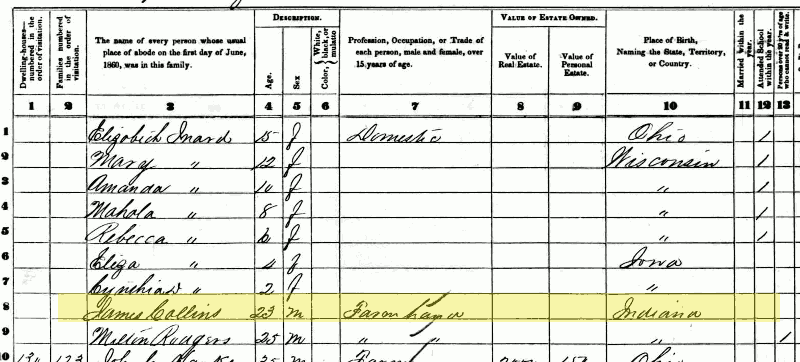 DESCRIPTION. VALUE OF ESTATE OWNED.
Dwelling-houses— numbered in the order of visitation.
Families numbered in the order of visitation.
The name of every person whose usual place of abode on the first day of June, 1860, was in this family.
Age.
Sex
Color, White, black, or mulatto
Profession, Occupation, or Trade of each person, male and female, over 15 years of age.
Value of Real Estate.
Value of Personal Estate.
Place of Birth, Naming the State, Territory, or Country.
Married within the year.
Attended School within the year.
Persons over 20 y'rs of age who cannot read & write.
1 2 3 4 5 6 7 8 9 10 11 12 13
1 Elizabeth Inard 15 f Domestic Ohio /
2 Mary " 12 f Wisconsin /
3 Amanda " 10 f " /
4 Mahala " 8 f " /
5 Rebecca " 6 f " /
6 Eliza " 4 f Iowa
7 Cynthia " 2 f "
8 James Collins 23 m Farm Indiana
9 Milton Rodgers 25 m " " " /
10 John Ohio